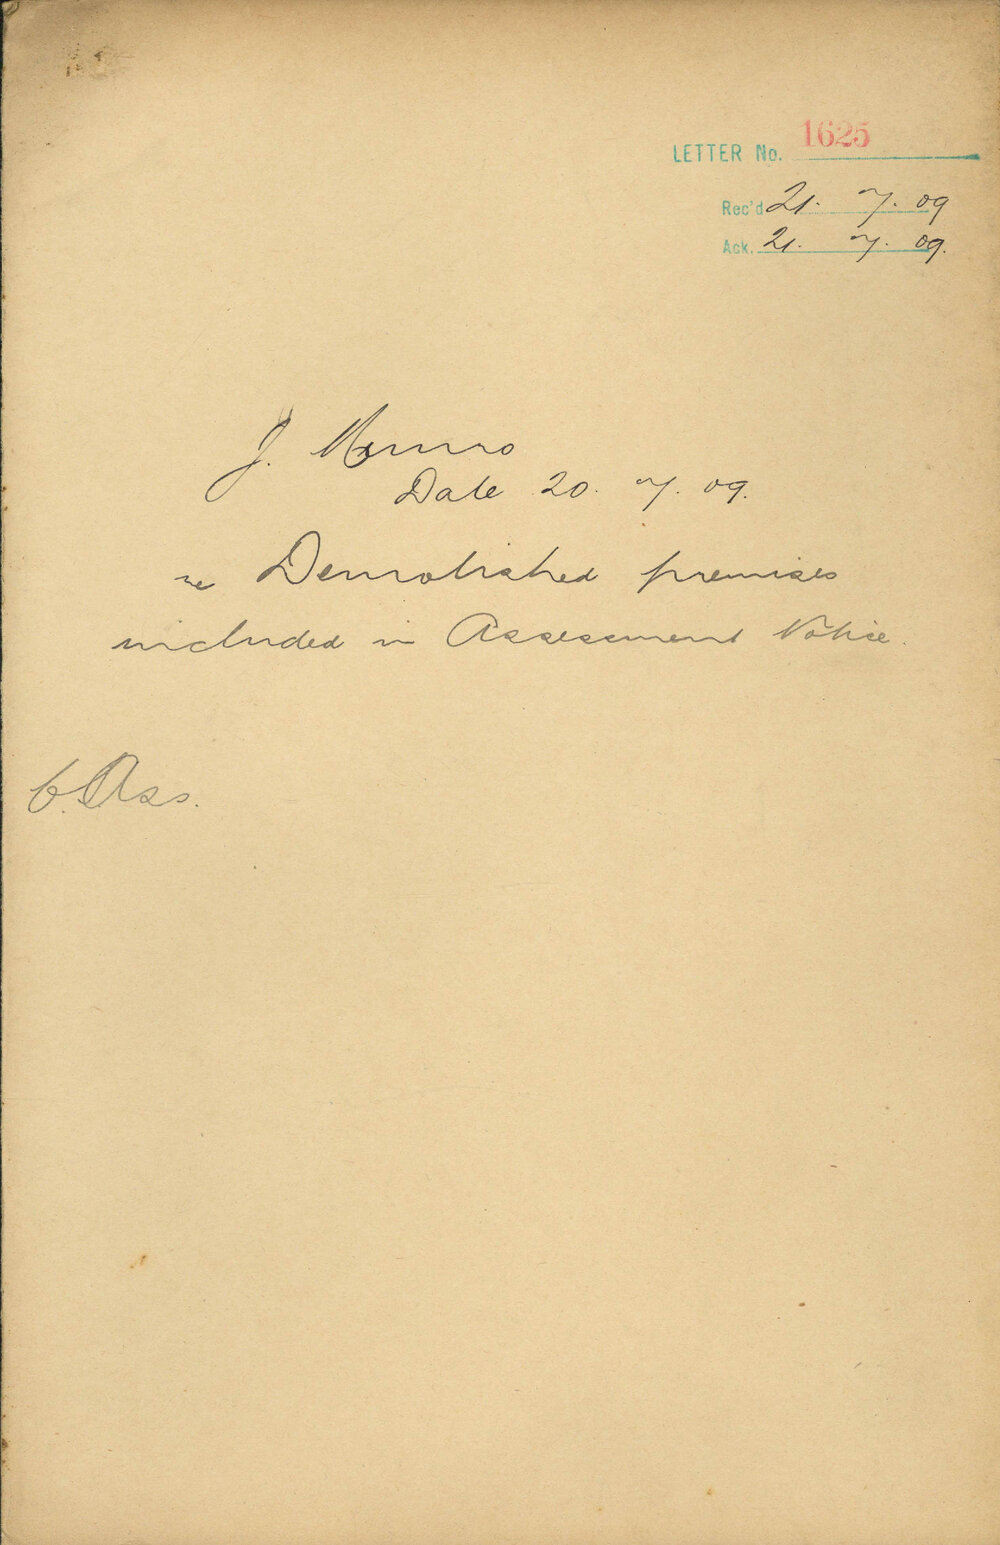 LETTER No. 1625
Rec'd 21. 7. 09
Ack. 21. 7. 09.
J. Munro
Date 20. 7. 09.
re Demolished premises
included in Assessment Notice.
C. Ass.